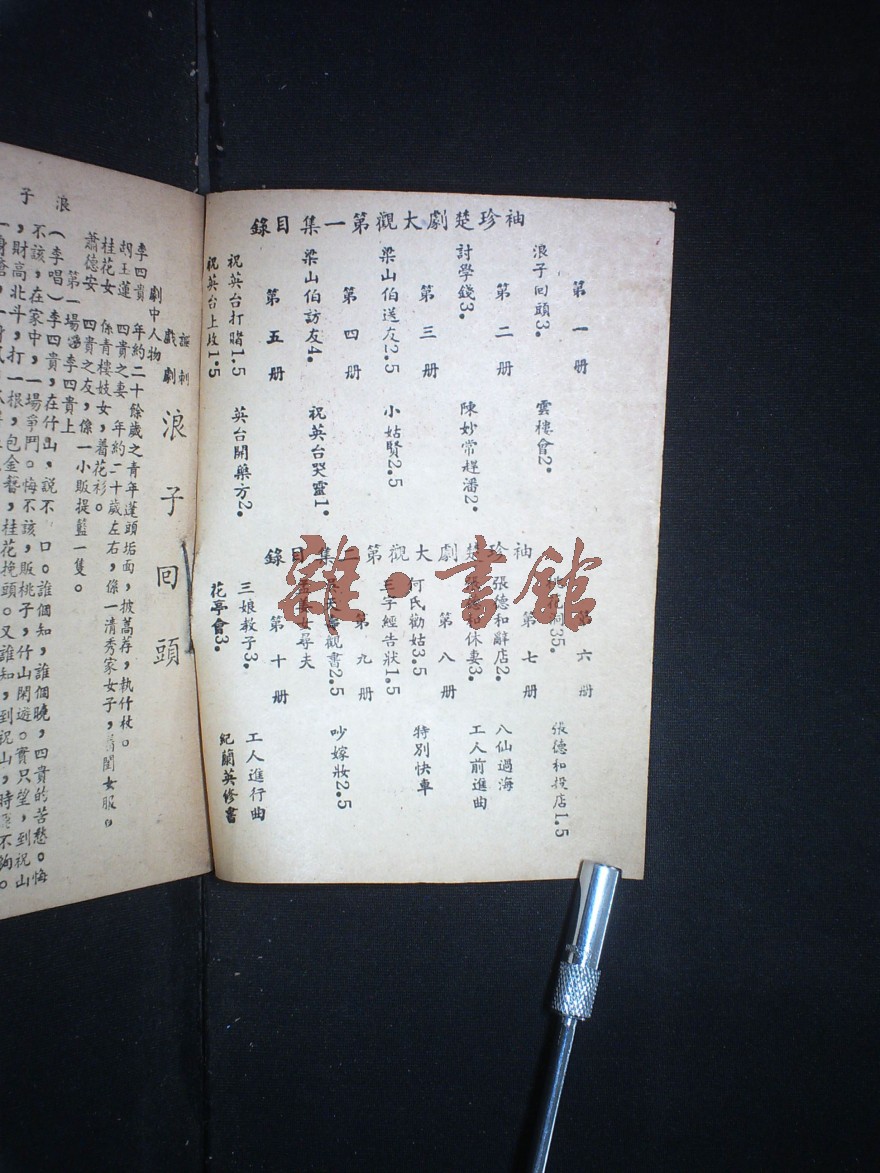 袖珍楚劇大觀第一集目錄
第一册
浪子回頭3. 雲樓會2.
第二册
討學錢3. 陳妙常趕潘2.
第三册
梁山伯送友2.5 小姑賢2.5
第四册
梁山伯訪友4. 祝英台哭靈1.
第五册
祝英台打賭1.5 英台開藥方2.
祝英台上坟1.5
袖珍楚劇大觀第二集目錄
第六册
35. 張德和投店1.5
第七册
張德和辭店2. 八仙過海
休妻3. 工人前進曲
第八册
何氏勸姑3.5 特別快車
三字經告狀1.5
第九册
觀書2.5 吵嫁妝2.5
孟姜女尋夫
第十册
三娘教子3. 工人進行曲
花亭會3. 紀蘭英修書
雜·書館
浪子
諷刺
戲劇
浪子回頭
劇中人物
李四貴 年約二十餘歲之青年蓬頭垢面，披蒿荐，執竹杖。
胡玉蓮 四貴之妻 年約二十歲左右，係一清秀家女子，着閨女服。
桂花女 係青樓妓女，着花衫。
蕭德安 四貴之友，係一小販提籃一隻。
第一場 李四貴上
（李唱）李四貴，在竹山，説不 口。誰個知，誰個曉，四貴的苦愁。悔
不該，在家中，一場爭鬥。悔不該，販桃子，竹山閑遊。實只望，到祝山
，財高北斗，打一根，包金簪，桂花挽頭。又誰知，到祝山，時 不夠。